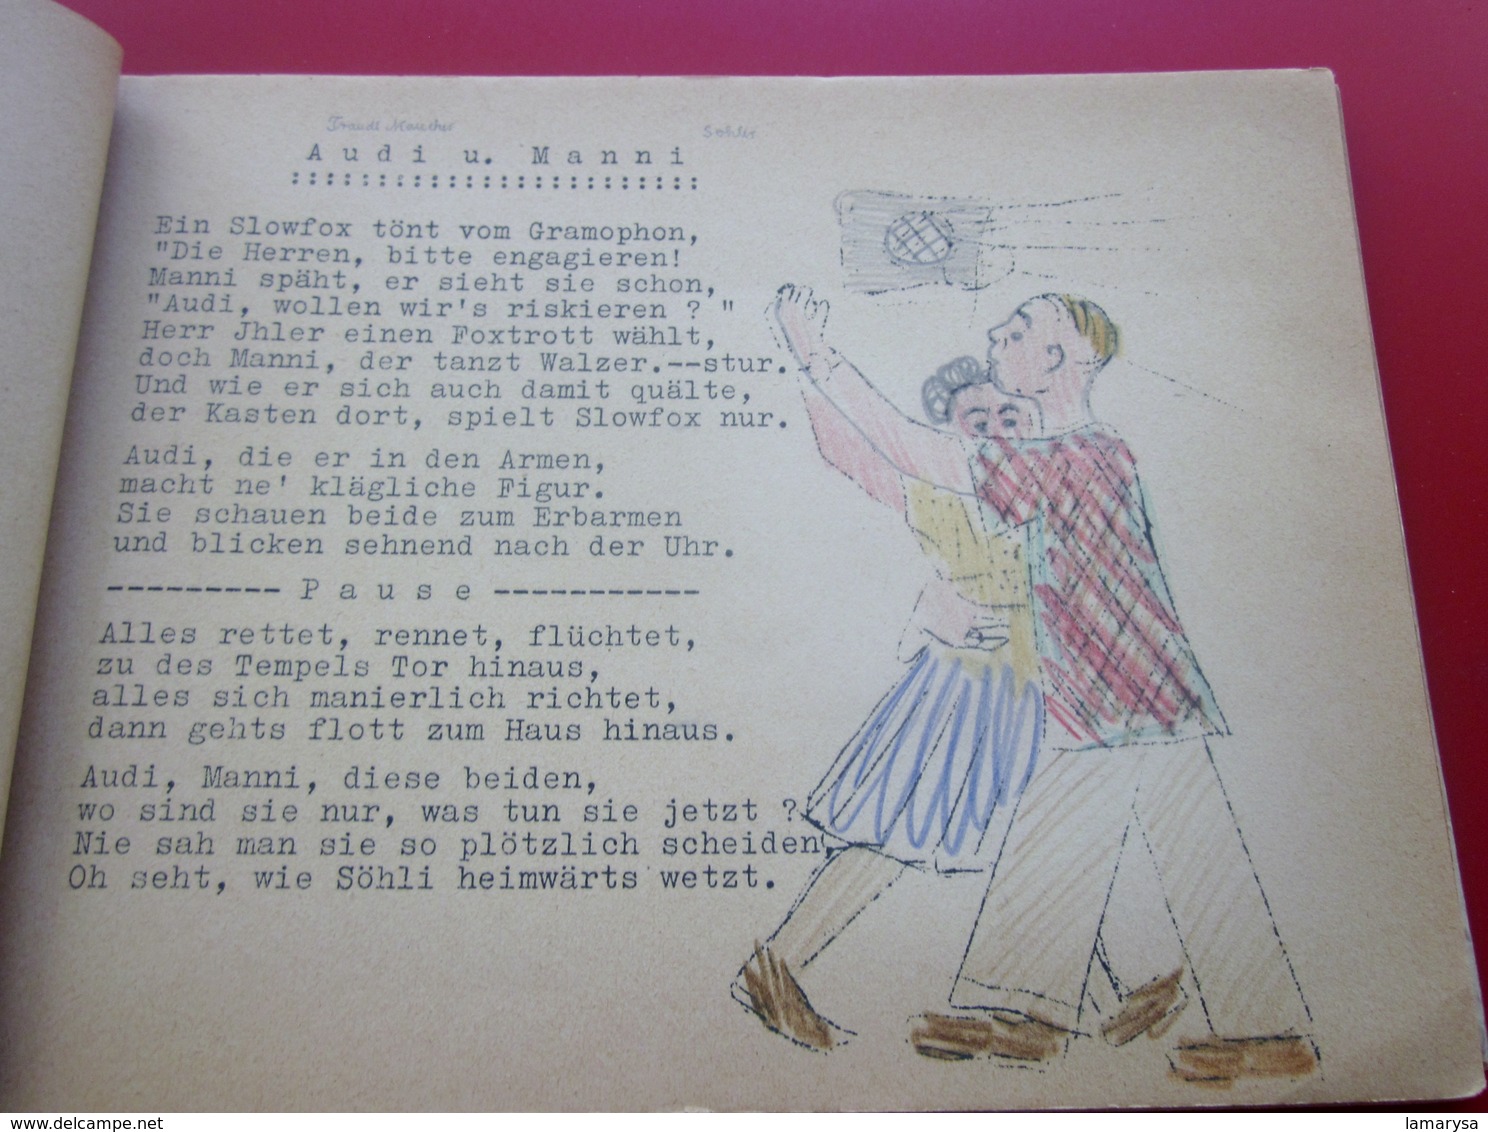 Söhler
A u d i  u.  M a n n i
:::::::::::::::::::::::::
Ein Slowfox tönt vom Gramophon,
"Die Herren, bitte engagieren!
Manni späht, er sieht sie schon,
"Audi, wollen wir's riskieren ? "
Herr Jhler einen Foxtrott wählt,
doch Manni, der tanzt Walzer.--stur.
Und wie er sich auch damit quälte,
der Kasten dort, spielt Slowfox nur.
Audi, die er in den Armen,
macht ne' klägliche Figur.
Sie schauen beide zum Erbarmen
und blicken sehnend nach der Uhr.
--------- P a u s e -----------
Alles rettet, rennet, flüchtet,
zu des Tempels Tor hinaus,
alles sich manierlich richtet,
dann gehts flott zum Haus hinaus.
Audi, Manni, diese beiden,
wo sind sie nur, was tun sie jetzt ?
Nie sah man sie so plötzlich scheiden,
Oh seht, wie Söhli heimwärts wetzt.
www.delcampe.net
lamarysa